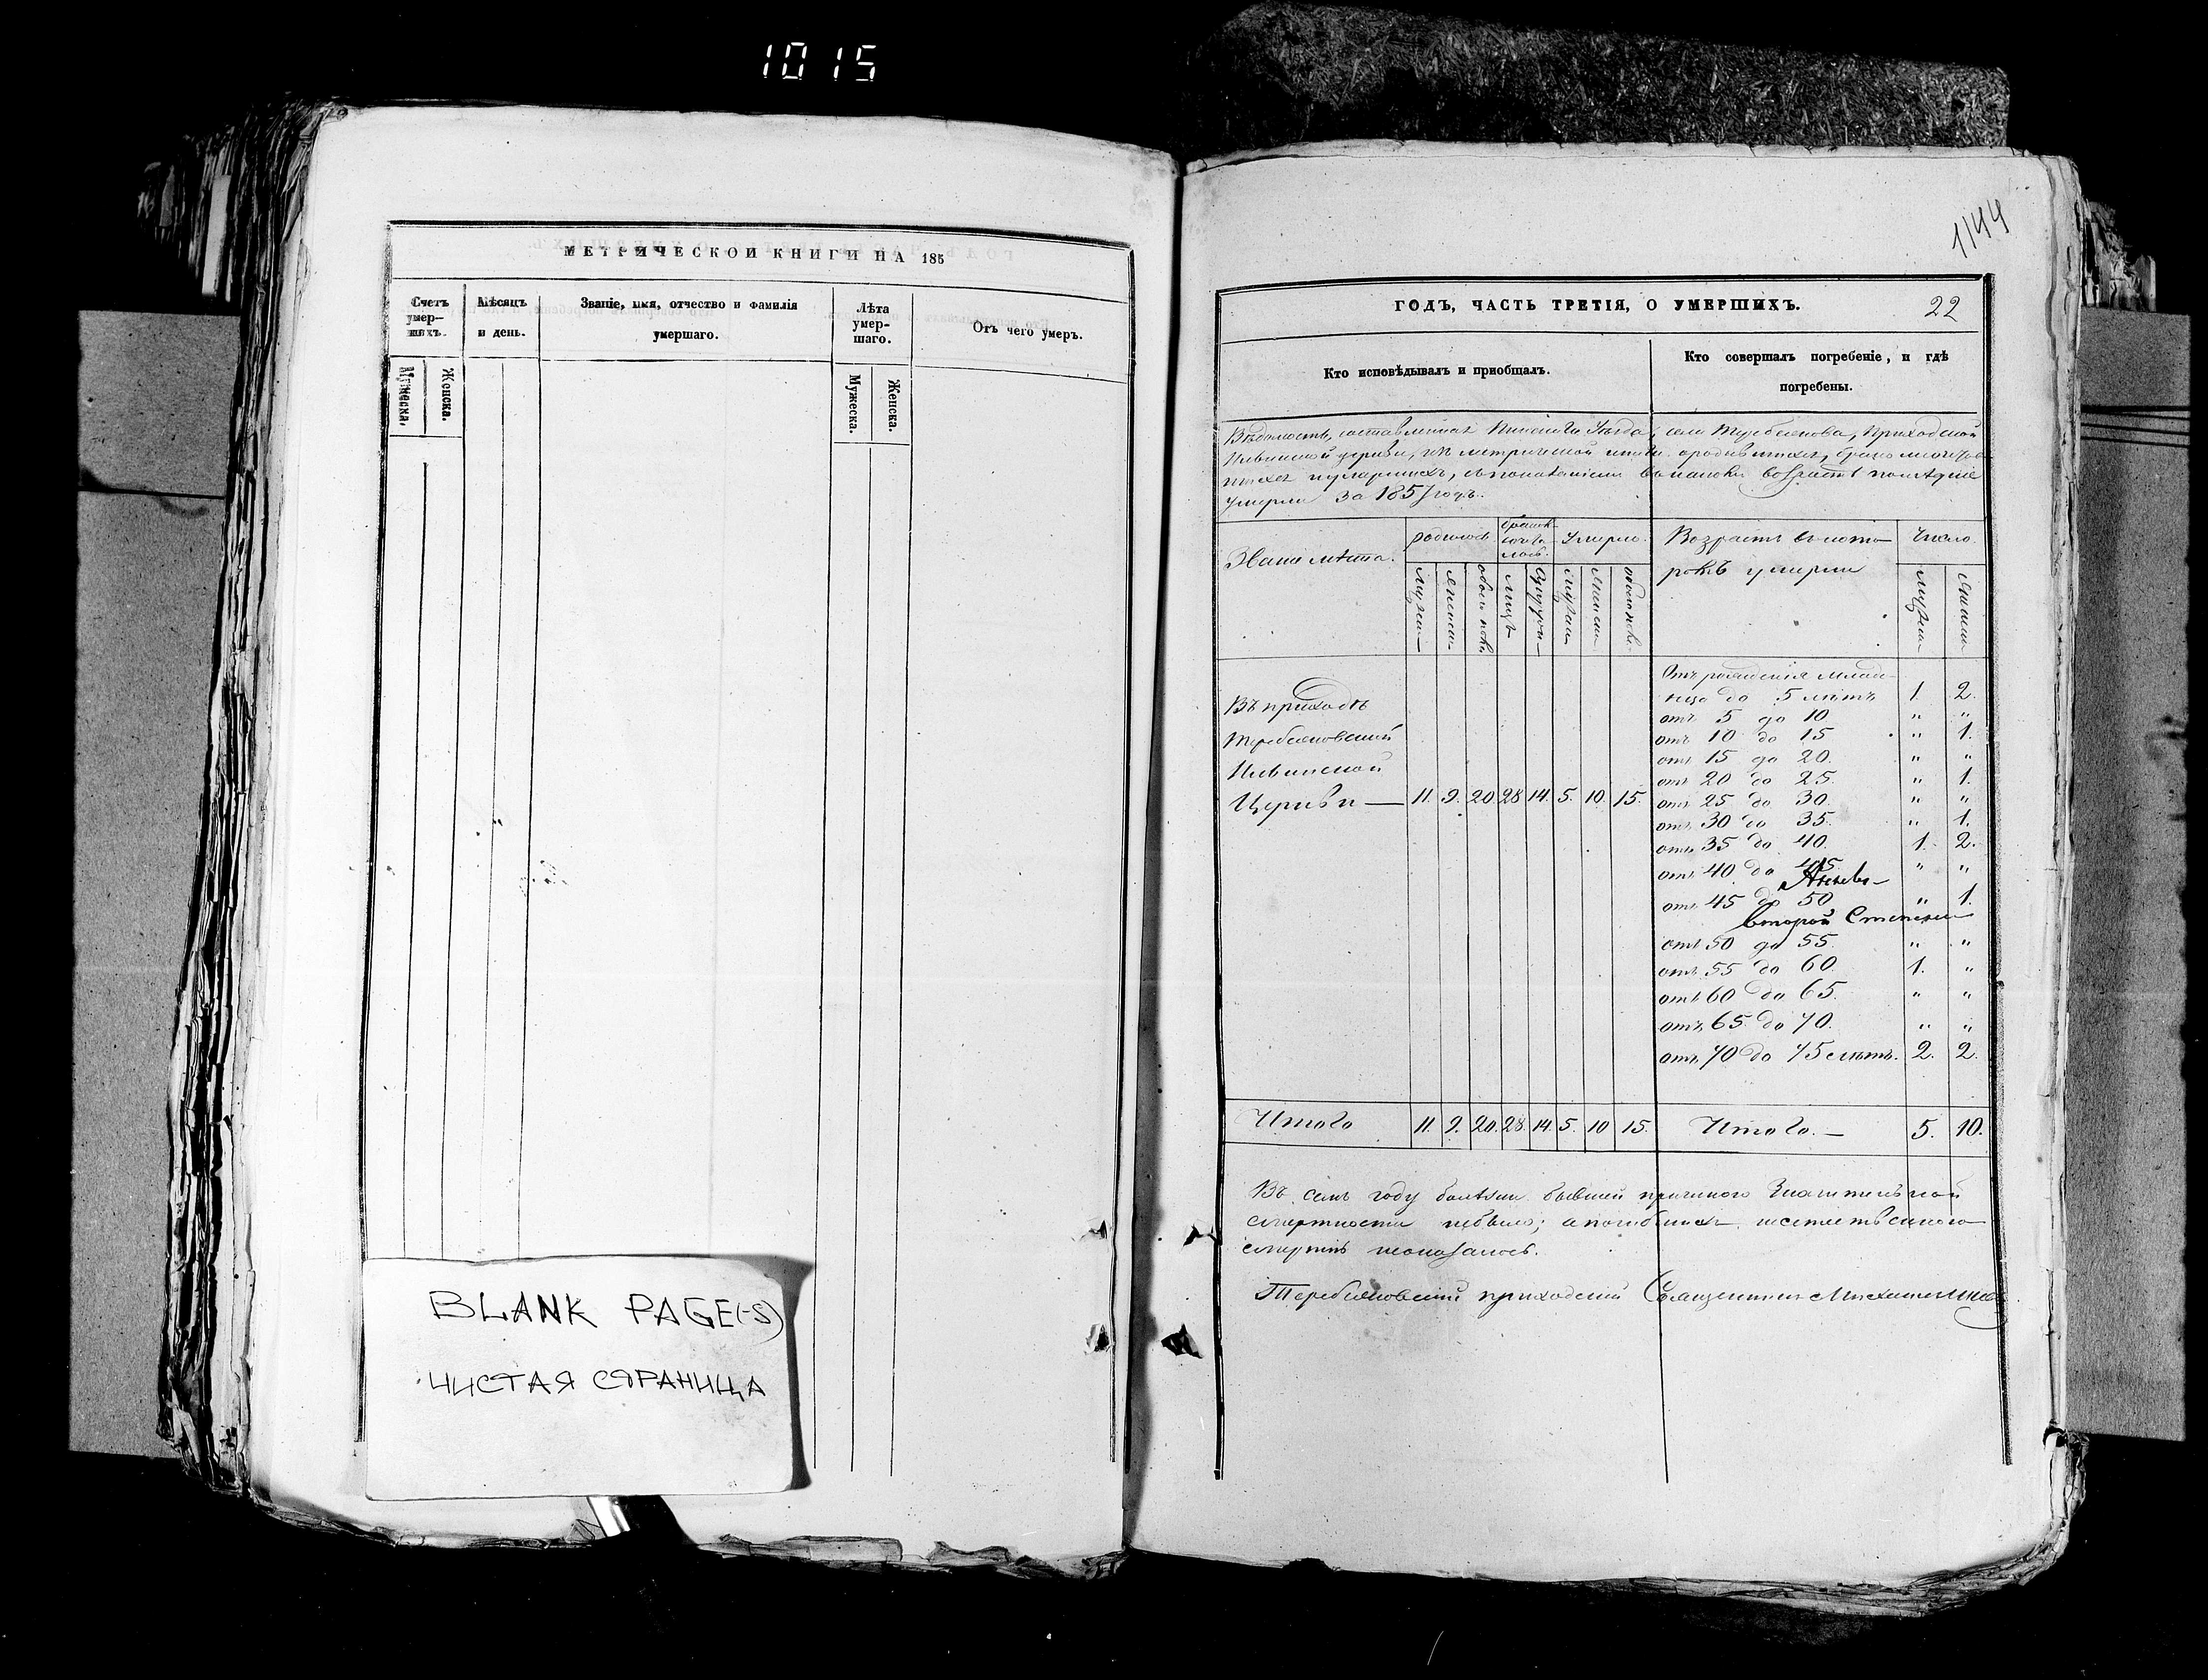 1015
МЕТРИЧЕСКОЙ КНИГИ НА 185
Счетъ умер-шихъ.
Мужеска.
Женска.
Мѣсяцъ и день.
Званіе, имя, отчество и фамилія умершаго.
Лѣта умер-шаго.
Мужеска.
Женска.
Отъ чего умеръ.
BLANK PAGE(-S)
ЧИСТАЯ СТРАНИЦА
1144
ГОДЪ, ЧАСТЬ ТРЕТІЯ, О УМЕРШИХЪ. 22
Кто исповѣдывалъ и пріобщалъ.
Кто совершалъ погребеніе, и гдѣ погребены.
Вѣдомость, составленная Пинскаго Уѣзда, села Теребежова, Приходской
церкви, изъ метрической книги о родившихся,
умершихъ, съ показаніемъ
умерли за 1857 годъ.
Званіе мѣста.
родилось
браков
Умерло.
Возрастъ въ кото-
ромъ умерли
Число.
Въ приходѣ
Теребежовской
Церкви — 11. 9. 20. 28 14. 5. 10. 15.
Отъ рожденія млад-
нца до 5 лѣтъ 1 2.
отъ 5 до 10 " "
отъ 10 до 15 " 1.
отъ 15 до 20. " "
отъ 20 до 25. " 1.
отъ 25 до 30. " "
отъ 30 до 35. " 1.
отъ 35 до 40. 1. 2.
отъ 40 до 45 " "
отъ 45 до 50 " 1.
второй Степени
отъ 50 до 55. " "
отъ 55 до 60. 1. "
отъ 60 до 65. " "
отъ 65 до 70. " "
отъ 70 до 75 лѣтъ. 2. 2.
Итого 11. 9. 20. 28. 14. 5. 10 15. Итого. — 5. 10.
Въ семъ году болѣзни бывшей причиною значительной
смертности небыло; а погибшихъ неестественною
смертію неоказалось.
Теребежовскій приходскій Священникъ Михаилъ